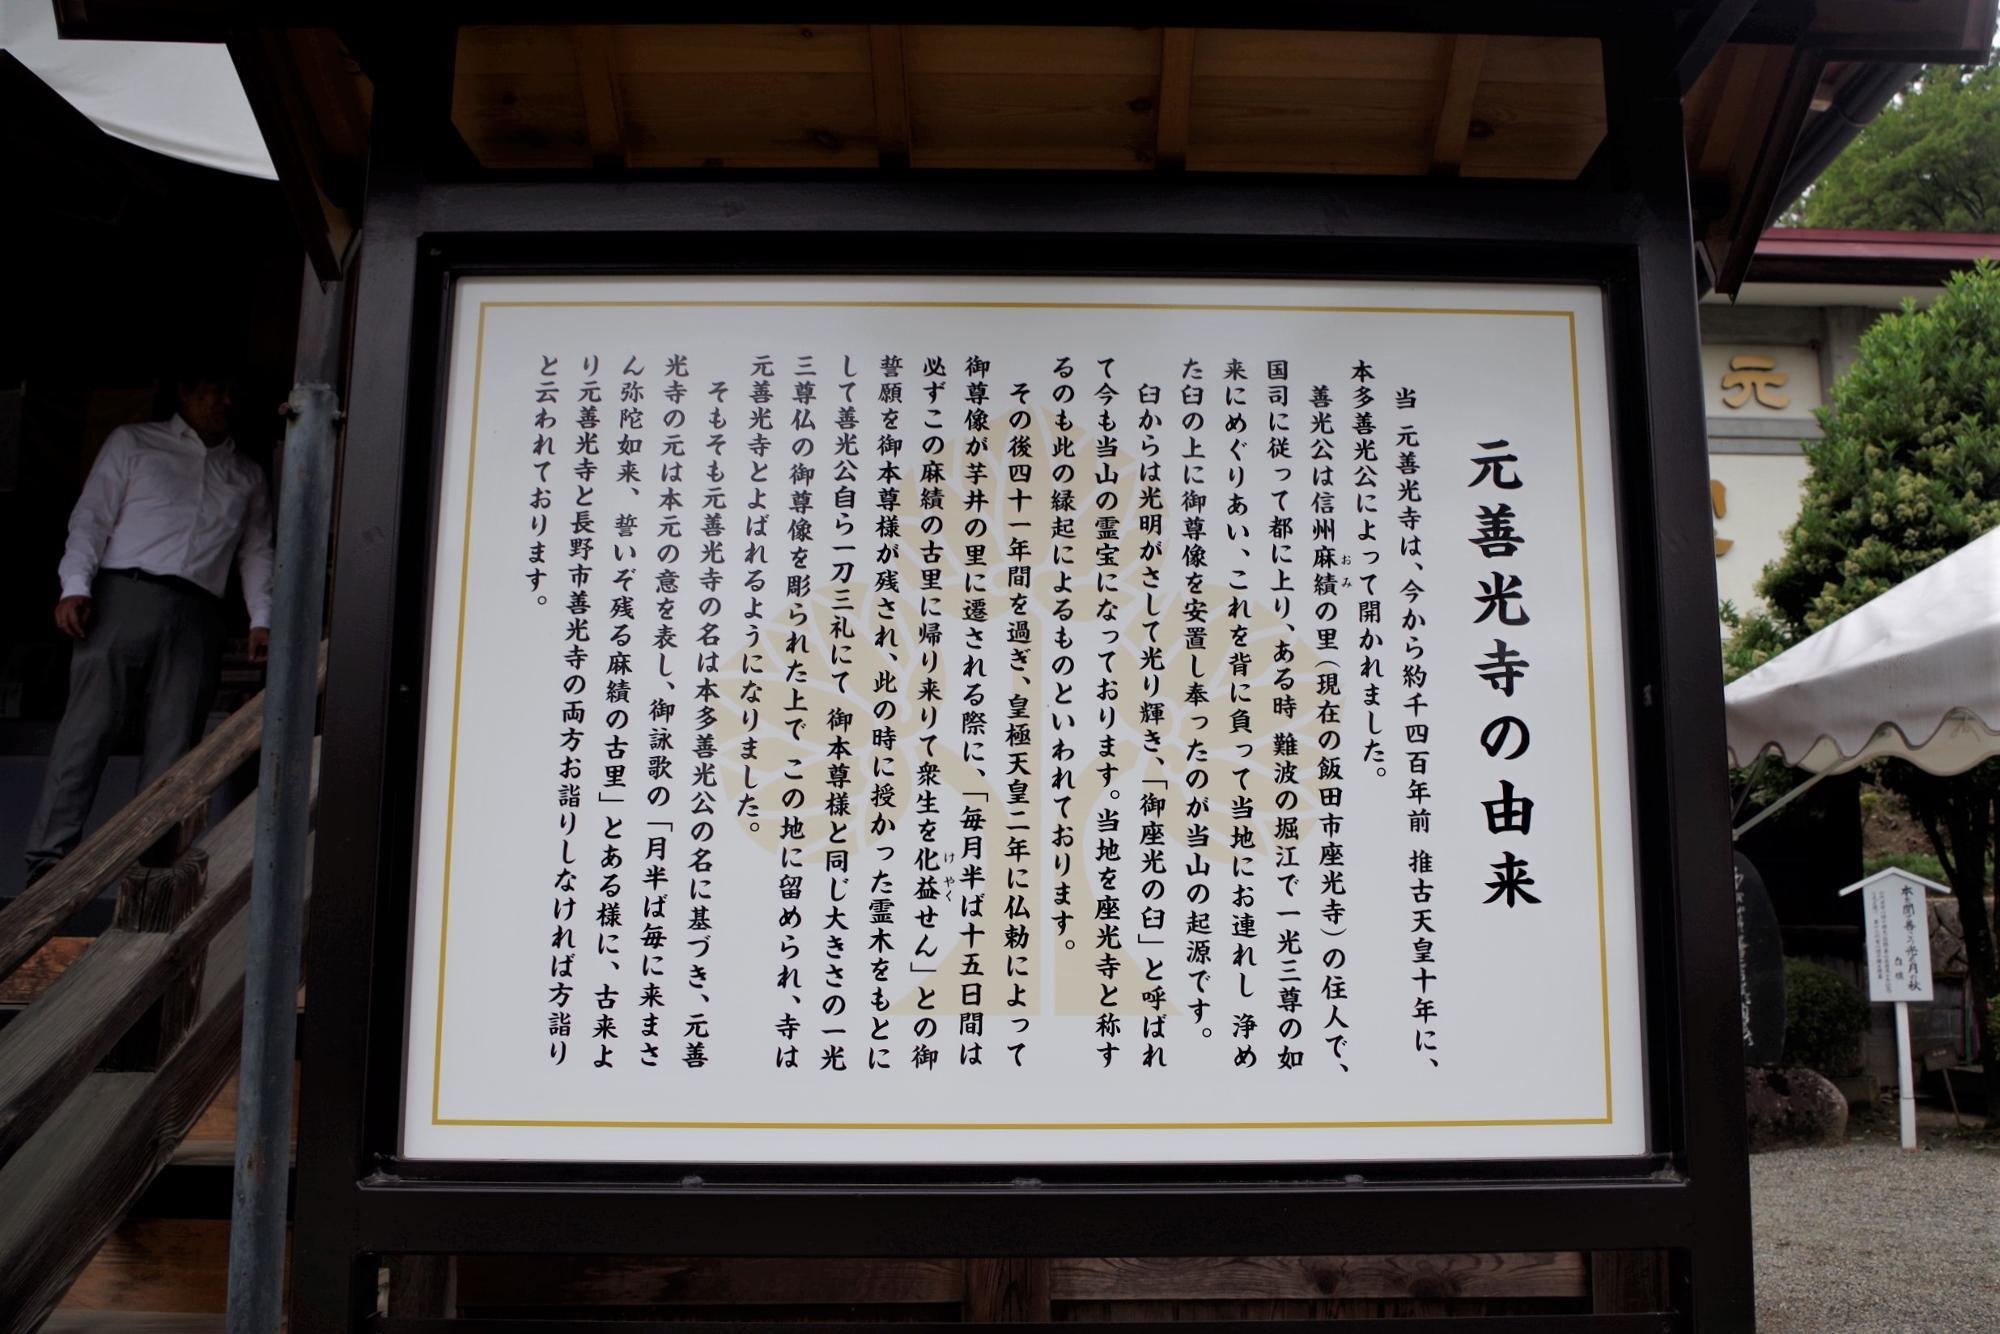 元善光寺の由来
当 元善光寺は、今から約千四百年前 推古天皇十年に、
本多善光公によって開かれました。
善光公は信州麻績の里（現在の飯田市座光寺）の住人で、
おみ
国司に従って都に上り、ある時 難波の堀江で一光三尊の如
来にめぐりあい、これを背に負って当地にお連れし 浄め
た臼の上に御尊像を安置し奉ったのが当山の起源です。
臼からは光明がさして光り輝き、「御座光の臼」と呼ばれ
て今も当山の霊宝になっております。当地を座光寺と称す
るのも此の縁起によるものといわれております。
その後四十一年間を過ぎ、皇極天皇二年に仏勅によって
御尊像が芋井の里に遷される際に、「毎月半ば十五日間は
必ずこの麻績の古里に帰り来りて衆生を化益せん」との御
けやく
誓願を御本尊様が残され、此の時に授かった霊木をもとに
して善光公自ら一刀三礼にて 御本尊様と同じ大きさの一光
三尊仏の御尊像を彫られた上で この地に留められ、寺は
元善光寺とよばれるようになりました。
そもそも元善光寺の名は本多善光公の名に基づき、元善
光寺の元は本元の意を表し、御詠歌の「月半ば毎に来まさ
ん弥陀如来、誓いぞ残る麻績の古里」とある様に、古来よ
り元善光寺と長野市善光寺の両方お詣りしなければ方詣り
と云われております。
元